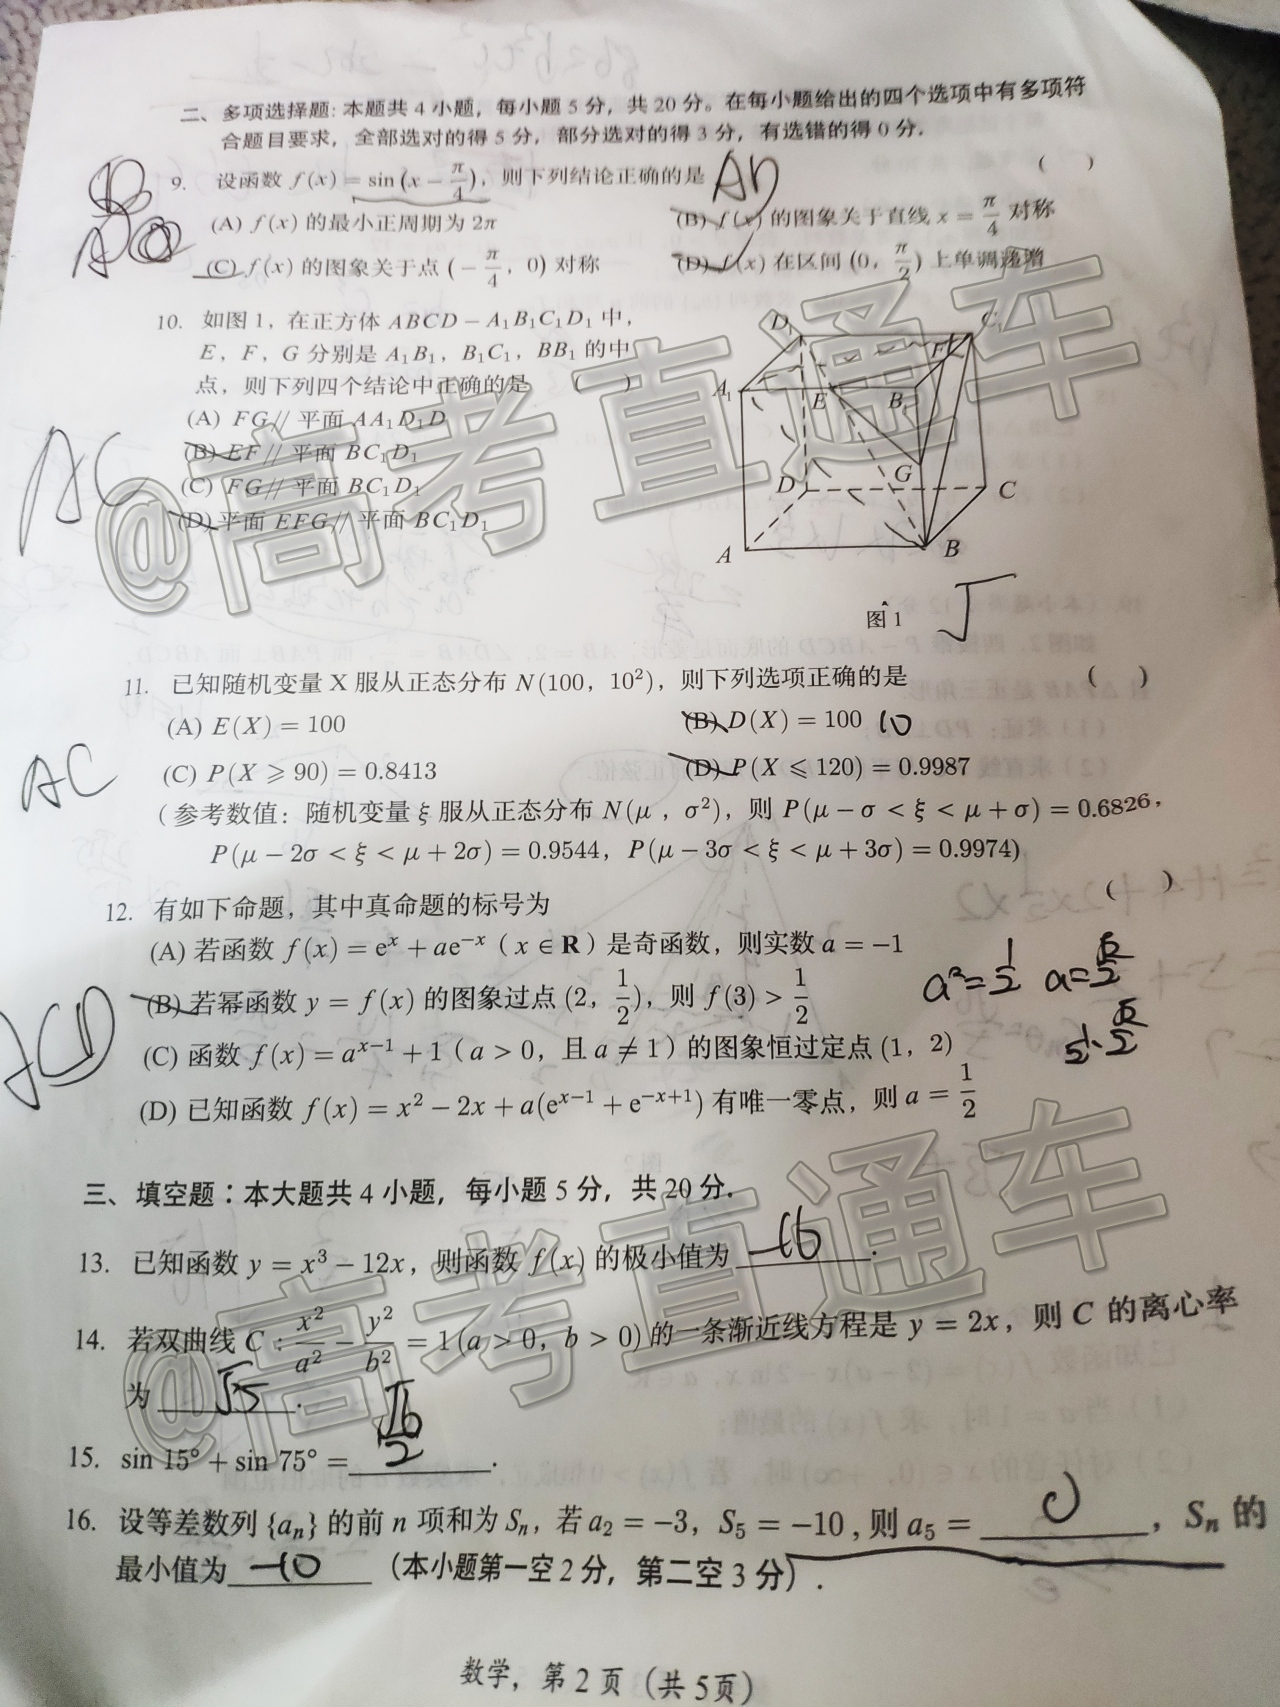 二、多项选择题: 本题共 4 小题，每小题 5 分，共 20 分。在每小题给出的四个选项中有多项符
合题目要求，全部选对的得 5 分，部分选对的得 3 分，有选错的得 0 分.
9. 设函数 f(x) = sin(x − π/4)，则下列结论正确的是 AD ( )
(A) f(x) 的最小正周期为 2π (B) f(x) 的图象关于直线 x = π/4 对称
(C) f(x) 的图象关于点 (−π/4，0) 对称 (D) f(x) 在区间 (0，π/2) 上单调递增
10. 如图 1，在正方体 ABCD − A₁B₁C₁D₁ 中，
E，F，G 分别是 A₁B₁，B₁C₁，BB₁ 的中
点，则下列四个结论中正确的是 ( )
(A) FG // 平面 AA₁D₁D
(B) EF // 平面 BC₁D₁
(C) FG // 平面 BC₁D₁
(D) 平面 EFG // 平面 BC₁D₁
AC
D₁ C₁
F
A₁ E B₁
G
D C
A B
图 1
11. 已知随机变量 X 服从正态分布 N(100，10²)，则下列选项正确的是 ( )
(A) E(X) = 100 (B) D(X) = 100 10
AC
(C) P(X ⩾ 90) = 0.8413 (D) P(X ⩽ 120) = 0.9987
(参考数值：随机变量 ξ 服从正态分布 N(μ，σ²)，则 P(μ − σ < ξ < μ + σ) = 0.6826，
P(μ − 2σ < ξ < μ + 2σ) = 0.9544，P(μ − 3σ < ξ < μ + 3σ) = 0.9974)
12. 有如下命题，其中真命题的标号为 ( )
(A) 若函数 f(x) = eˣ + ae⁻ˣ（x ∈ R）是奇函数，则实数 a = −1
(B) 若幂函数 y = f(x) 的图象过点 (2，1/2)，则 f(3) > 1/2
a²=1/2 a=√2/2
ACD
(C) 函数 f(x) = aˣ⁻¹ + 1（a > 0，且 a ≠ 1）的图象恒过定点 (1，2)
(D) 已知函数 f(x) = x² − 2x + a(eˣ⁻¹ + e⁻ˣ⁺¹) 有唯一零点，则 a = 1/2
三、填空题：本大题共 4 小题，每小题 5 分，共 20 分.
13. 已知函数 y = x³ − 12x，则函数 f(x) 的极小值为 −16 .
14. 若双曲线 C : x²/a² − y²/b² = 1 (a > 0，b > 0) 的一条渐近线方程是 y = 2x，则 C 的离心率
为 √5 .
15. sin 15° + sin 75° = √6/2 .
16. 设等差数列 {aₙ} 的前 n 项和为 Sₙ，若 a₂ = −3，S₅ = −10，则 a₅ = 0 ，Sₙ 的
最小值为 −10 （本小题第一空 2 分，第二空 3 分）.
数学，第 2 页（共 5页）
@高考直通车
@高考直通车